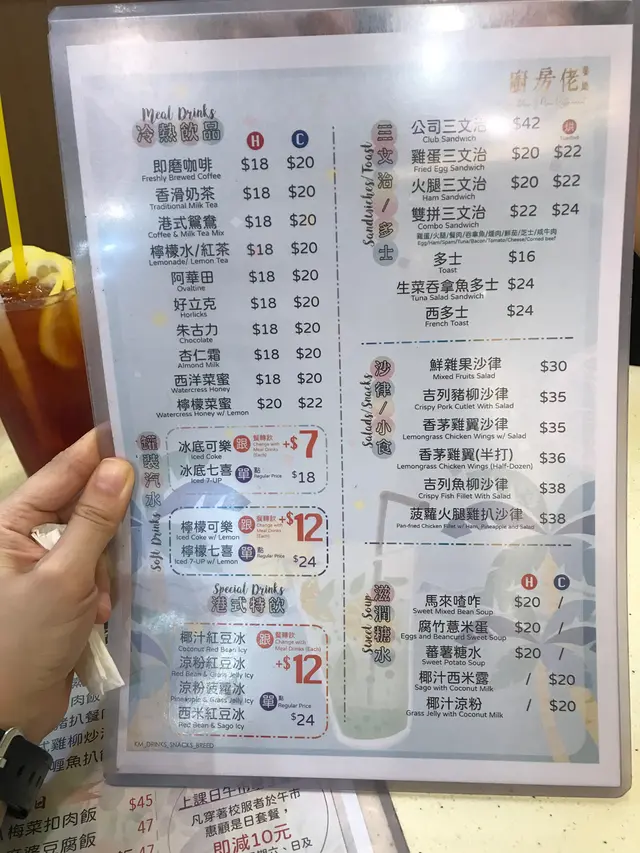 廚房佬
Meal Drinks
冷熱飲品
H C
即磨咖啡 $18 $20
Freshly Brewed Coffee
香滑奶茶 $18 $20
Traditional Milk Tea
港式鴛鴦 $18 $20
Coffee & Milk Tea Mix
檸檬水/紅茶 $18 $20
Lemonade/ Lemon Tea
阿華田 $18 $20
Ovaltine
好立克 $18 $20
Horlicks
朱古力 $18 $20
Chocolate
杏仁霜 $18 $20
Almond Milk
西洋菜蜜 $18 $20
Watercress Honey
檸檬菜蜜 $20 $22
Watercress Honey w/ Lemon
罐裝汽水
Soft Drinks
冰底可樂 跟 餐轉飲 +$7
Iced Coke Change with Meal Drinks (Each)
冰底七喜 單 點 $18
Iced 7-UP Regular Price
檸檬可樂 跟 餐轉飲 +$12
Iced Coke w/ Lemon Change with Meal Drinks (Each)
檸檬七喜 單 點 $24
Iced 7-UP w/ Lemon Regular Price
Special Drinks
港式特飲
椰汁紅豆冰 跟 餐轉飲
Coconut Red Bean Icy Change with Meal Drinks (Each)
涼粉紅豆冰 +$12
Red Bean & Grass Jelly Icy
涼粉菠蘿冰 單 點
Pineapple & Grass Jelly Icy Regular Price
西米紅豆冰 $24
Red Bean & Sago Icy
KM_DRINKS, SNACKS_BREED
三文治/多士
Sandwiches/Toast
烘
公司三文治 $42
Club Sandwich
雞蛋三文治 $20 $22
Fried Egg Sandwich
火腿三文治 $20 $22
Ham Sandwich
雙拼三文治 $22 $24
Combo Sandwich
雞蛋/火腿/餐肉/吞拿魚/煙肉/鮮茄/芝士/咸牛肉
Egg/Ham/Spam/Tuna/Bacon/Tomato/Cheese/Corned beef
多士 $16
Toast
生菜吞拿魚多士 $24
Tuna Salad Sandwich
西多士 $24
French Toast
沙律/小食
Salads/Snacks
鮮雜果沙律 $30
Mixed Fruits Salad
吉列豬柳沙律 $35
Crispy Pork Cutlet With Salad
香茅雞翼沙律 $35
Lemongrass Chicken Wings w/ Salad
香茅雞翼(半打) $36
Lemongrass Chicken Wings (Half-Dozen)
吉列魚柳沙律 $38
Crispy Fish Fillet With Salad
菠蘿火腿雞扒沙律 $38
Pan-fried Chicken Fillet w/ Ham, Pineapple and Salad
滋潤糖水
Sweet Soup
H C
馬來喳咋 $20 /
Sweet Mixed Bean Soup
腐竹薏米蛋 $20 /
Eggs and Beancurd Sweet Soup
蕃薯糖水 $20 /
Sweet Potato Soup
椰汁西米露 / $20
Sago with Coconut Milk
椰汁涼粉 / $20
Grass Jelly with Coconut Milk
梅菜扣肉飯 $45
豆腐飯 47
47
凡穿著校服者於午市
惠顧是日套餐,
即減10元